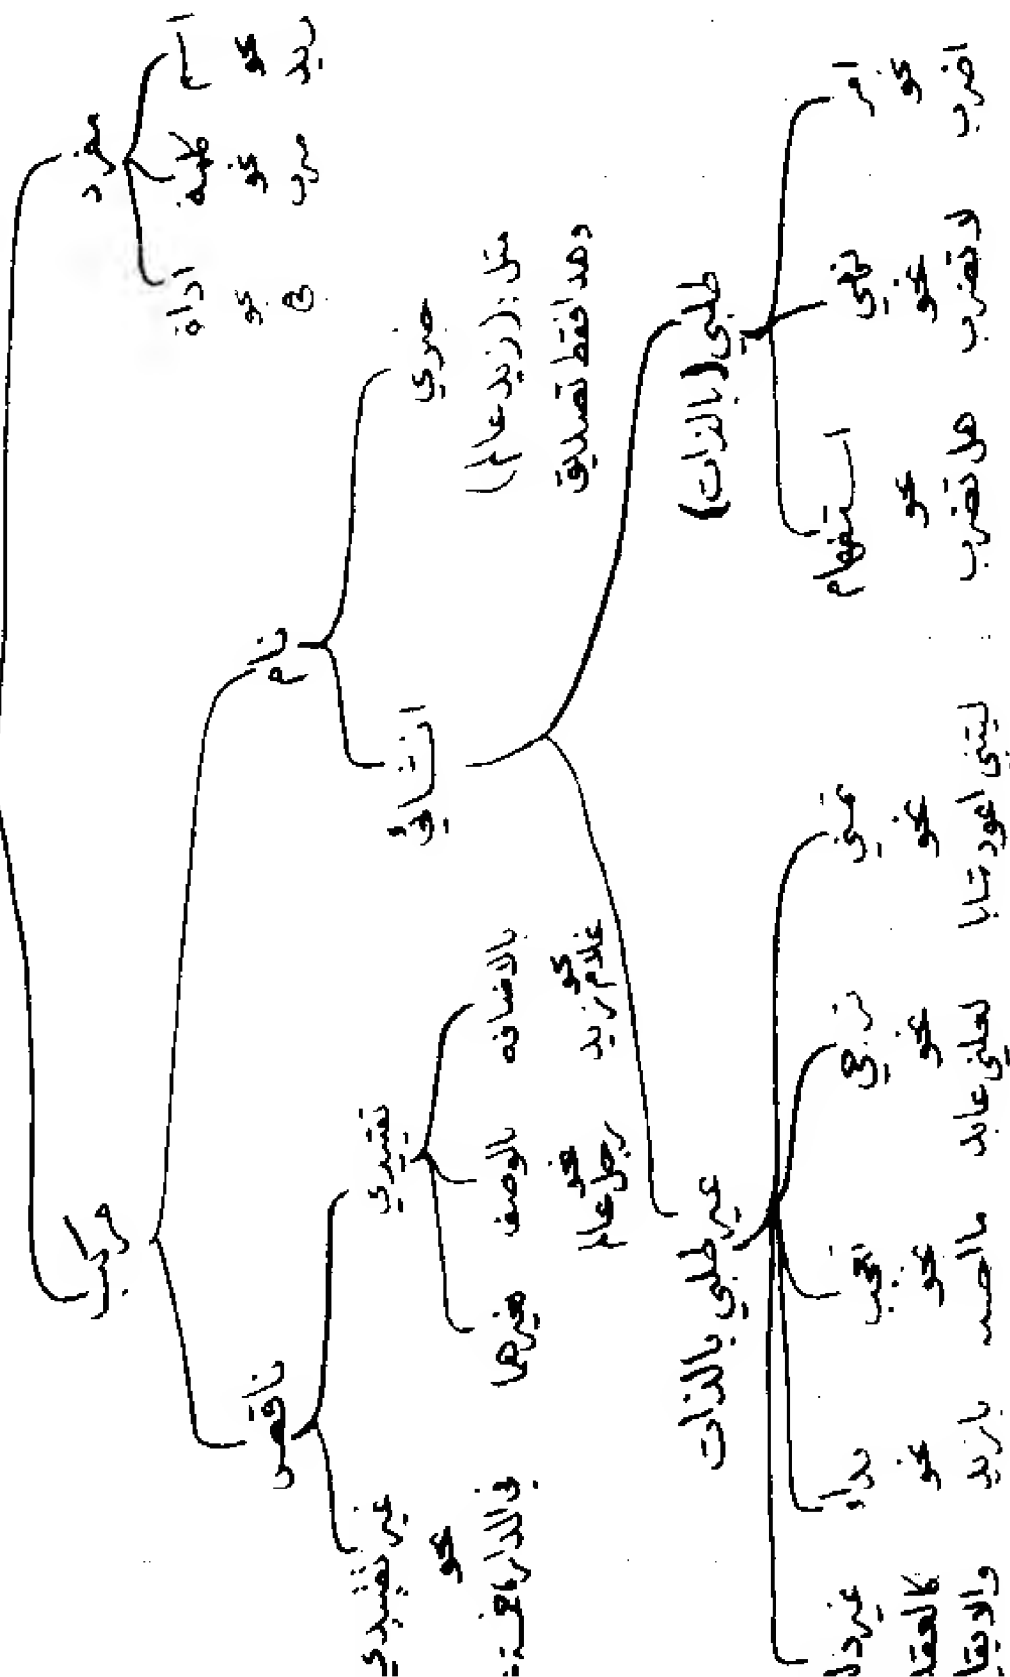 مفرد
اسم
نحو
زيد
كلمة
نحو
ضرب
اداة
نحو
في
مركب
تام
خبري
مثل: (زيد عالم)
وهذا فقط تصديق
انشائي
طلبي (بالذات)
امر
نحو
اضرب
نهي
نحو
لا تضرب
استفهام
نحو
هل تضرب
غير طلبي بالذات
تمني
نحو
ليتني اعود شابا
ترجي
نحو
لعلني عابد
تعجب
نحو
ما احسن
نداء
نحو
يا زيد
غير ذلك
ناقص
تقييدي
بالاضافه
نحو
غلام زيد
بالوصف
نحو
رجل عالم
غيرهما
غير تقييدي
نحو
في الدار